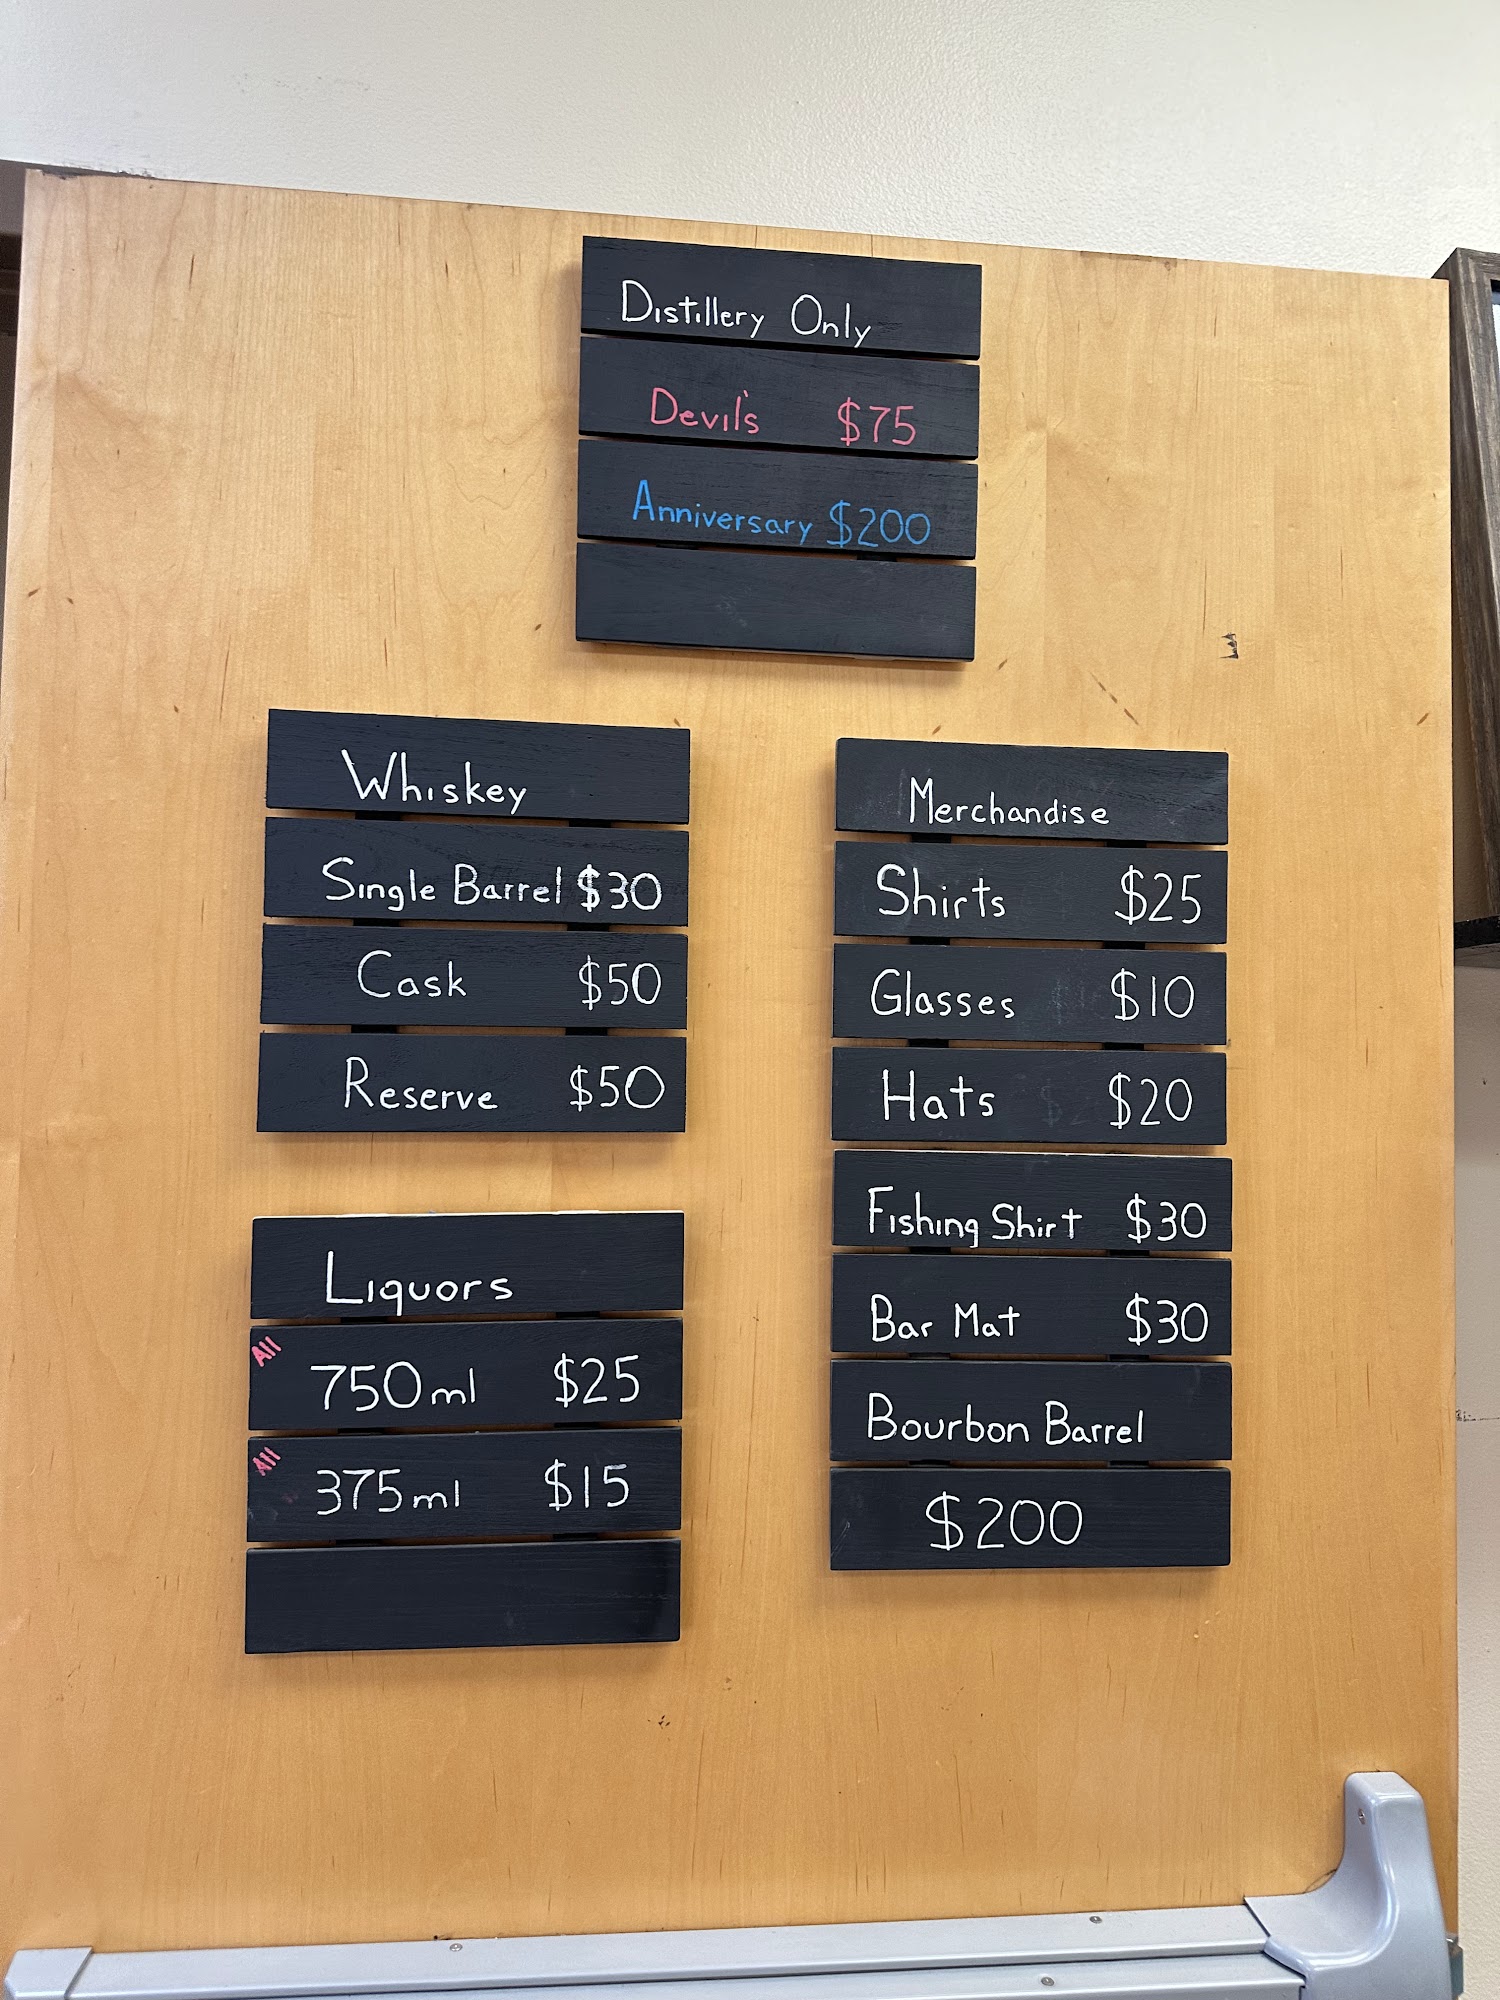 Distillery Only
Devil's $75
Anniversary $200
Whiskey
Single Barrel $30
Cask $50
Reserve $50
Liquors
All 750ml $25
All 375ml $15
Merchandise
Shirts $25
Glasses $10
Hats $20
Fishing Shirt $30
Bar Mat $30
Bourbon Barrel
$200